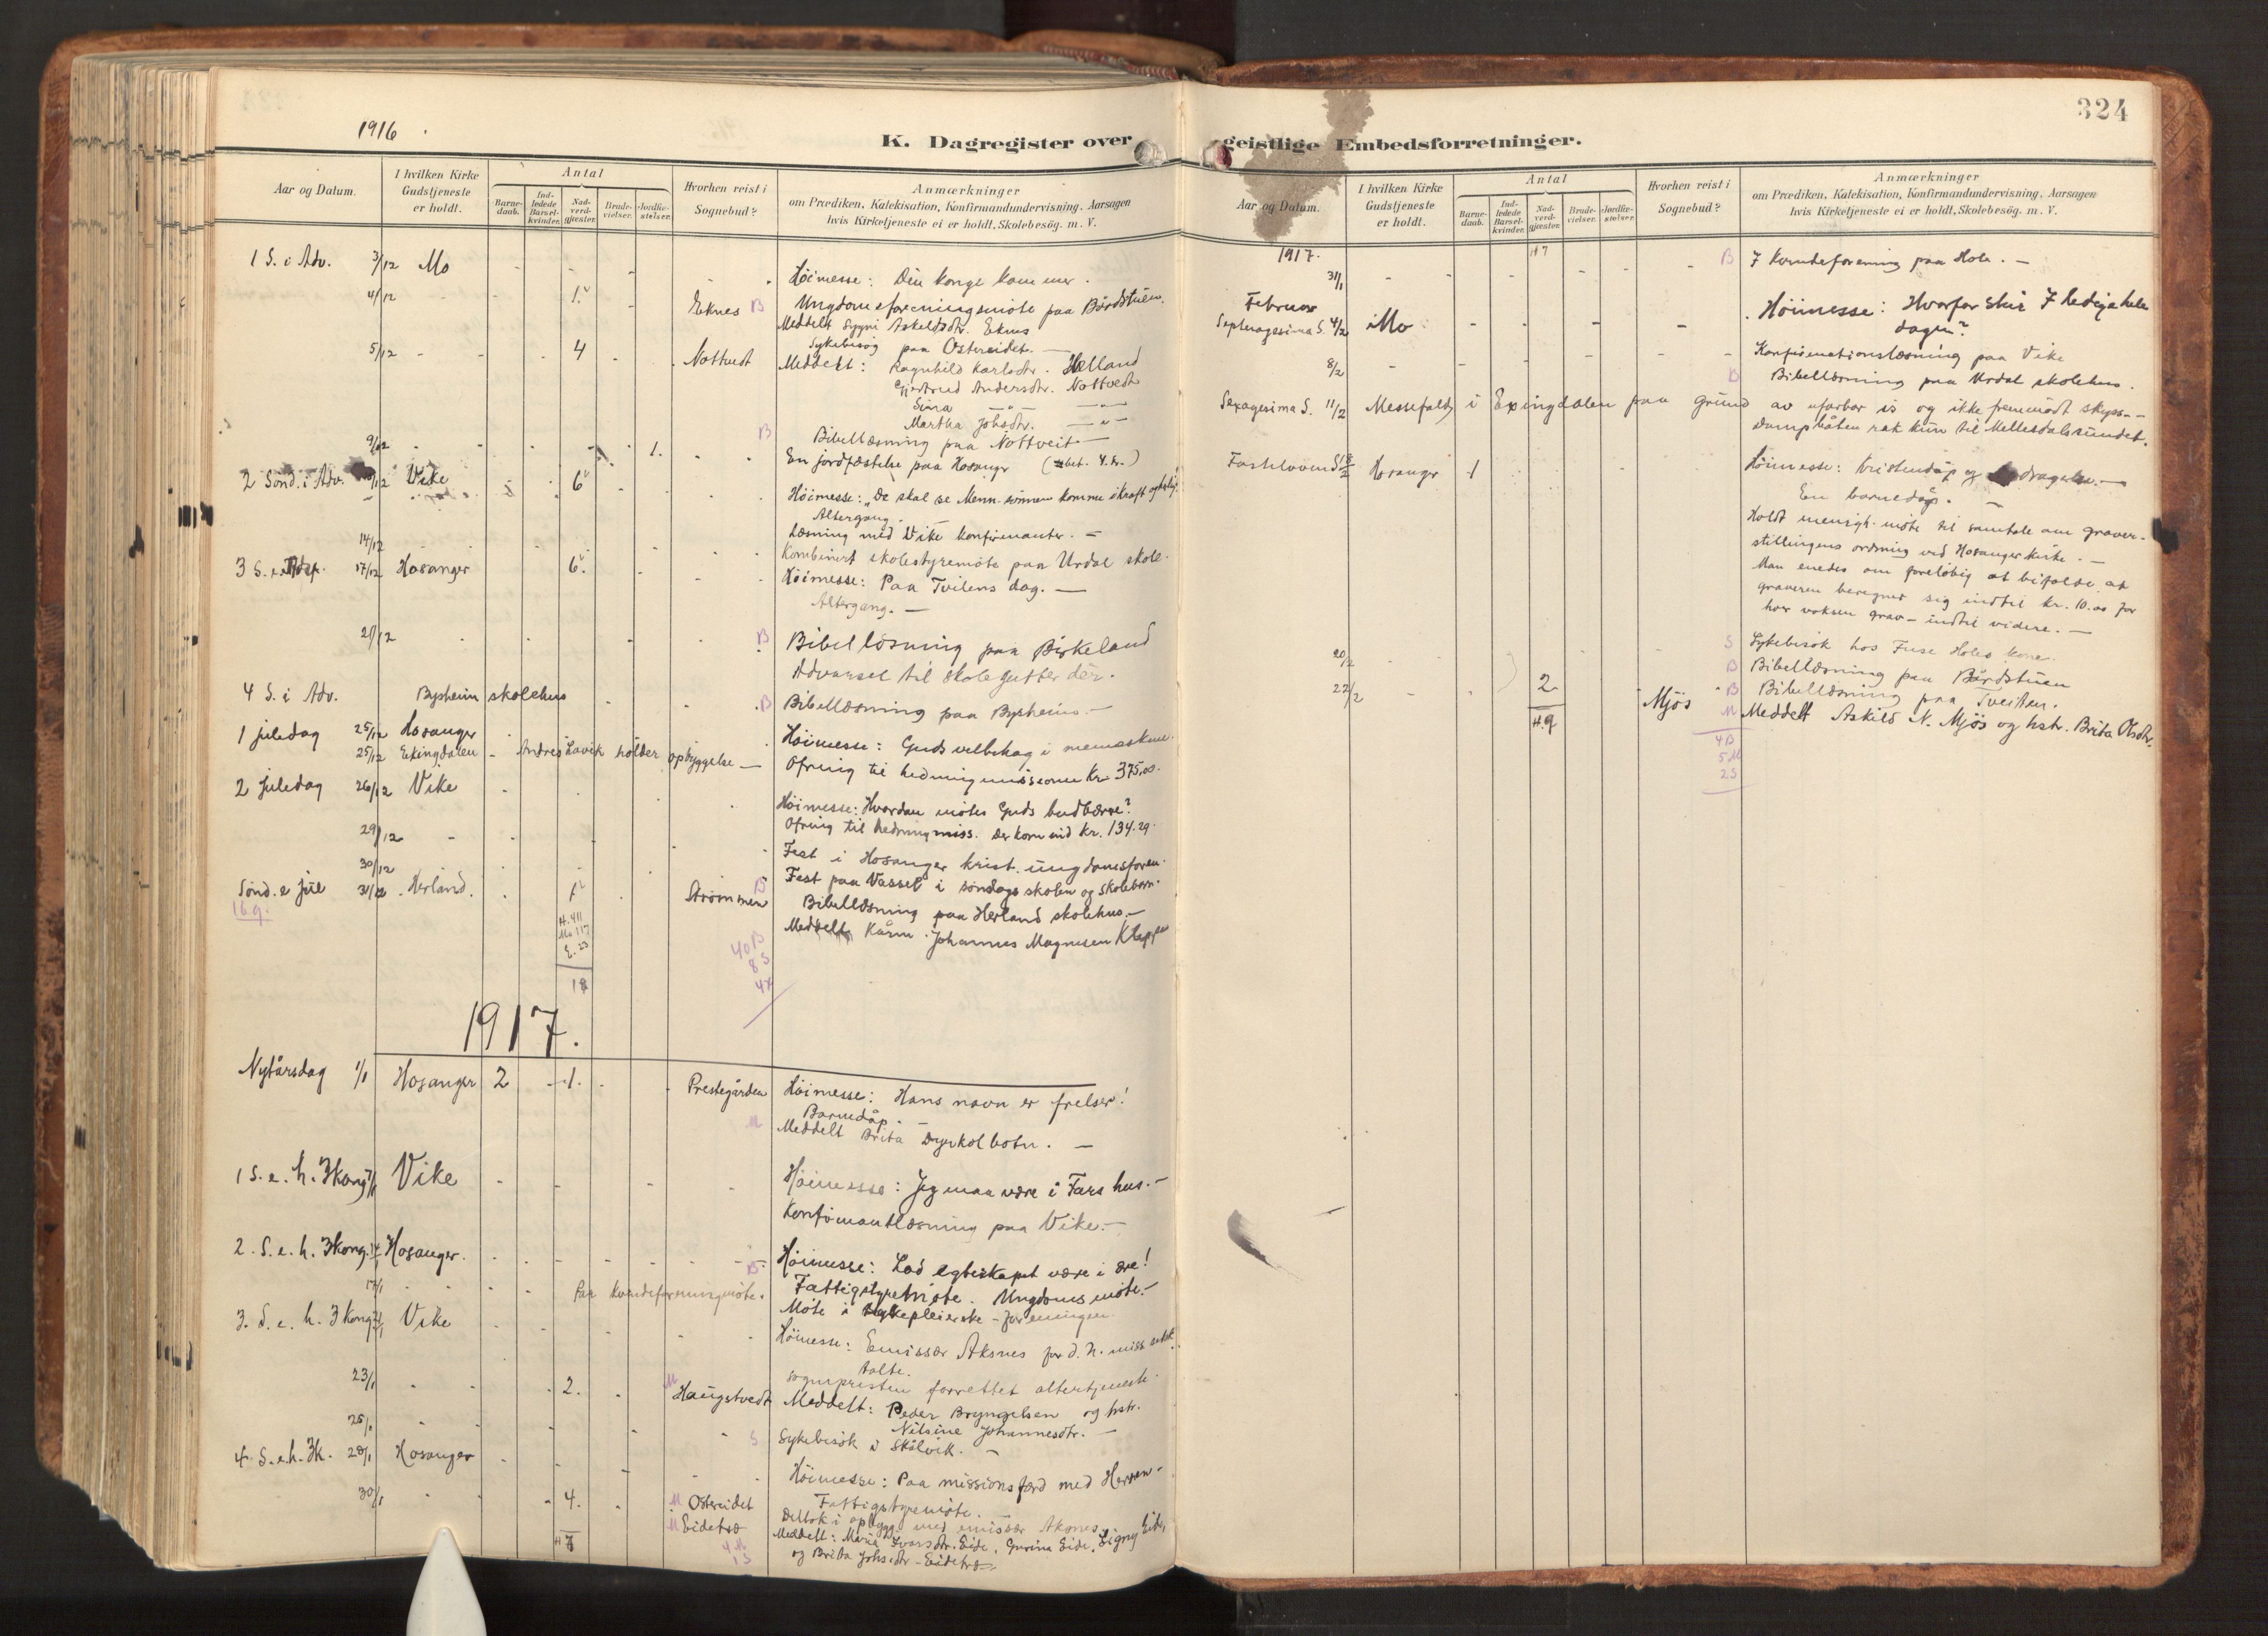 1916
K. Dagregister over
Aar og Datum.
I hvilken Kirke Gudstjeneste er holdt.
Antal
Barnedaab.
Indledede Barselkvinder.
Nadverdgjester.
Brudevielser.
Jordfæstelser.
Hvorhen reist i Sognebud?
Anmærkninger
om Prædiken, Katekisation, Konfirmandundervisning, Aarsagen
hvis Kirketjeneste ei er holdt, Skolebesög. m. V.
1 S. i Adv. 3/12 Mo
Höimesse: Din konge kommer.
4/12 1. Eknes B Ungdomsforeningsmöte paa Bårdstuen.
Meddelt Askeldsdtr. Eknes
Sykebesög paa Ostereidet. —
5/12 4 Nottvedt Meddelt: Ragnhild Karlsdtr. Helland
Gjertrud Andersdtr. Nottvedt
Sina — " — — " —
Martha Johsdtr. — " —
B Bibellæsning paa Nottveit —
9/12 1. En jordfæstelse paa Hosanger (bet. 4. kr.)
2 Sönd. i Adv. 10/12 Vike 6
Höimesse: "De skal se Menn. sönnen komme i kraft og herlig.
Altergang. —
14/12 Læsning med Vike konfirmanter. —
Kombinert skolestyremöte paa Urdal skole.
3 S. i Adv. 17/12 Hosanger 6. Höimesse: Paa Tvilens dag. —
Altergang. —
21/12 B Bibellæsning paa Birkeland
Advarsel til skolegutter der.
4 S. i Adv. Bysheim skolehus B Bibellæsning paa Bysheim. —
1 juledag 25/12 Hosanger Höimesse: Guds velbehag i menneskene.
25/12 Eksingdalen – Andres Lavik holder opbyggelse —
Ofring til hedningmissionen Kr 375,00.
2 juledag 26/12 Vike Höimesse: Hvordan mötes Guds budbærere?
Ofring til hedningmiss. Der kom ind kr. 134.29.
29/12 Fest i Hosanger krist. ungdomsforen.
30/12 Fest paa Vasset i söndagsskolen og skolebarn.
Sönd. e jul 31/12 Herland. 1 Strömmen B Bibellæsning paa Herland skolehus. —
Meddelt Johannes Magnesen
16 g.
H. 411
Mo 117
E. 23
18
40 B
8 S
1917.
Nytårsdag 1/1 Hosanger 2 1. Prestegården Höimesse: Hans navn er frelser!
Barnedåp. —
M Meddelt Brita Dyrkolbotn. —
1 S. e. h. 3kong. 7/1 Vike Höimesse: Jeg maa være i Fars hus. —
Konfirmantlæsning paa Vike. —
2. S. e. h. 3kong. 14/1 Hosanger. Höimesse: Lad egteskapet være i ære!
B. Fattigstyremöte. Ungdomsmöte. —
17/1 Paa kvindeforeningmöte. Möte i sykepleierske-foreningen.
3. S. e. h. 3kong. 21/1 Vike Höimesse: Emissær Aksnes for d. n. miss. selsk.
talte.
sognepresten forrettet altertjeneste.
23/1 2. M Haugstvedt Meddelt: Peder Bryngelsen og hstr.
Nilsine Johannesdtr. —
25/1 S Sykebesök i Skålvik. —
4. S. e. h. 3k. 28/1 Hosanger Höimesse: Paa missionsferd med Herren —
Fattigstyremöte. —
30/1 4. M Ostereidet Deltok i opbygg. med emissær Aksnes.
M Eidetræ Meddelt: Maria Ivarsdtr. Eide, Gurina Eide, Signy Eide,
og Brita Johsdtr – Eidetræ —
7
4 M
1 S
324
geistlige Embedsforretninger.
Aar og Datum.
I hvilken Kirke Gudstjeneste er holdt.
Antal
Barnedaab.
Indledede Barselkvinder.
Nadverdgjester.
Brudevielser.
Jordfæstelser.
Hvorhen reist i Sognebud?
Anmærkninger
om Prædiken, Katekisation, Konfirmandundervisning, Aarsagen
hvis Kirketjeneste ei er holdt, Skolebesög. m. V.
1917.
H 7
31/1 B I kvindeforening paa Hole. —
Februar
Septuagesima S. 4/2 Mo Höimesse: Hvorfor står I ledige hele
dagen?
8/2 Konfirmationslæsning paa Vike
B Bibellæsning paa Urdal skolehus.
Sexagesima S. 11/2 Messefald i Exingdalen paa grund av ufarbar is og ikke fremmödt skyss. —
Dampbåten rak kun til Mellesdalssundet.
Fastelavens S 18/2 Hosanger 1 Höimesse: Kristendåp og
En barnedåp. —
Holdt menigh. möte til samtale om graver-
stillingens ordning ved Hosanger kirke. —
Man enedes om foreløbig at bifalde, at
graveren beregner sig indtil kr. 10.00 for
hver voksen grav – indtil videre. —
20/2 S Sykebesök hos Fuse Holes kone.
B Bibellæsning paa Bårdstuen
22/2 2 Mjös B Bibellæsning paa Tveiten.
M Meddelt Askild N. Mjös og hstr. Brita Olsdtr.
H. 9
4 B
5 M
2 S